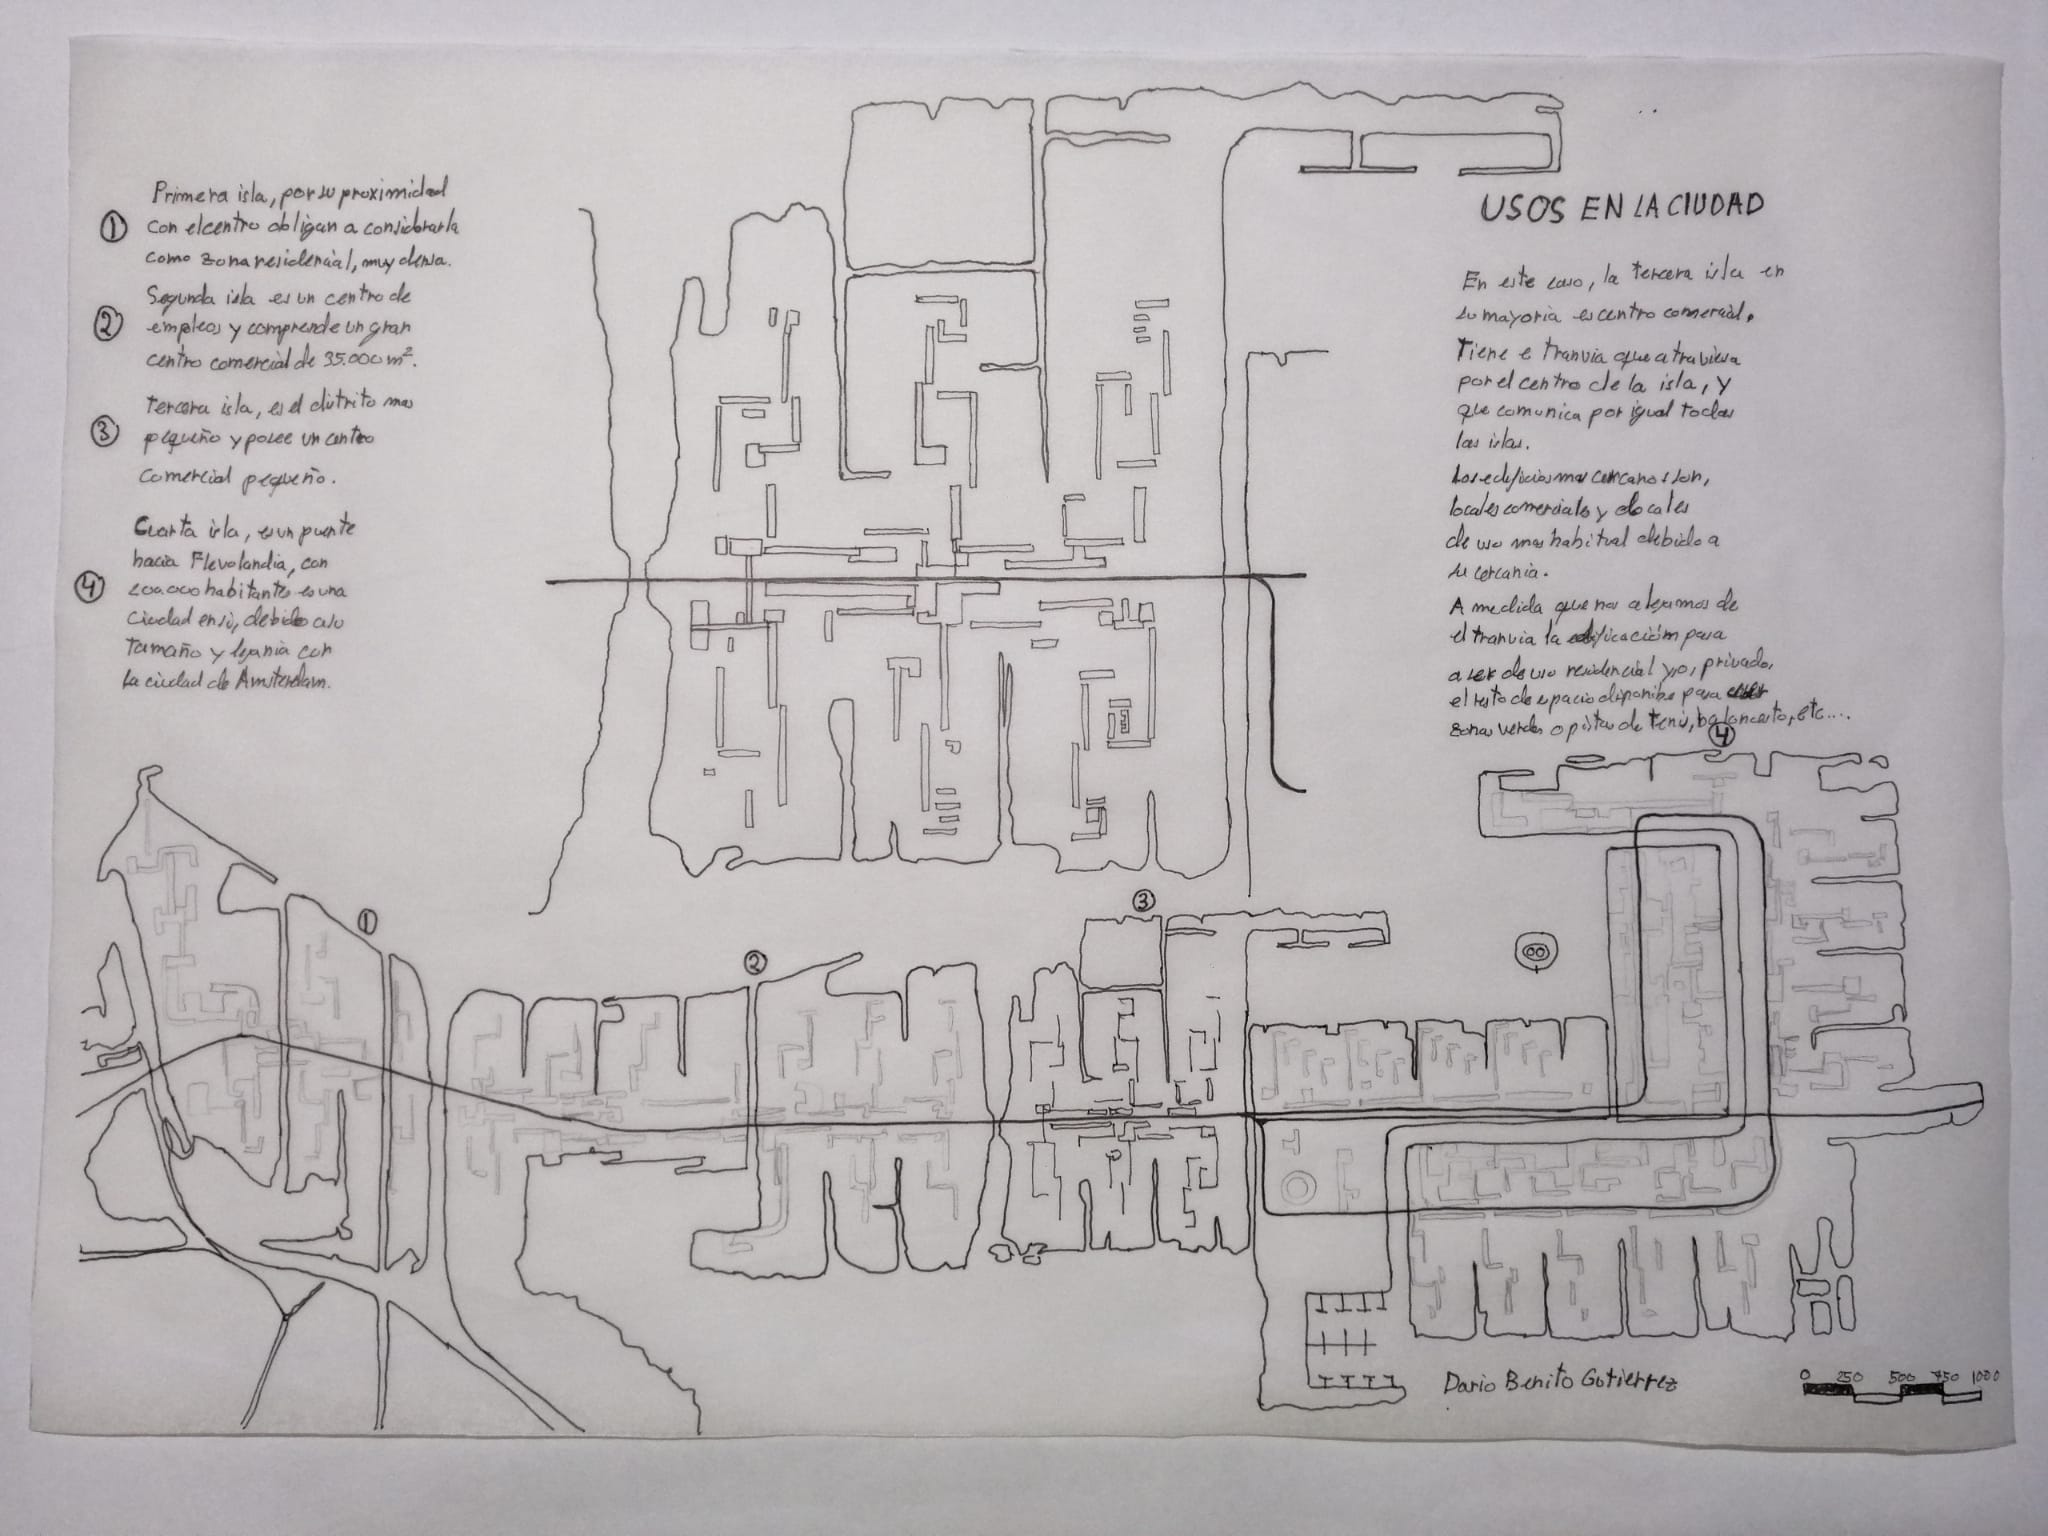 Primera isla, por su proximidad
① con el centro obligan a considerarla
como zona residencial, muy densa.
Segunda isla es un centro de
② empleos y comprende un gran
centro comercial de 35.000 m².
Tercera isla, es el distrito mas
③ pequeño y posee un centro
comercial pequeño.
Cuarta isla, es un puente
hacia Flevolandia, con
④ 200.000 habitantes es una
ciudad en si, debido a su
tamaño y lejania con
la ciudad de Amsterdam.
USOS EN LA CIUDAD
En este caso, la tercera isla en
su mayoria es centro comercial.
Tiene e tranvia que atraviesa
por el centro de la isla, y
que comunica por igual todas
las islas.
Los edificios mas cercanos son,
locales comerciales y locales
de uso mas habitual debido a
su cercania.
A medida que nos alejamos de
el tranvia la edificación pasa
a ser de uso residencial y/o, privado,
el resto de espacio disponible para
zonas verdes o pistas de tenis, baloncesto, etc....
④
①
②
③
Dario Benito Gutierrez
0 250 500 750 1000